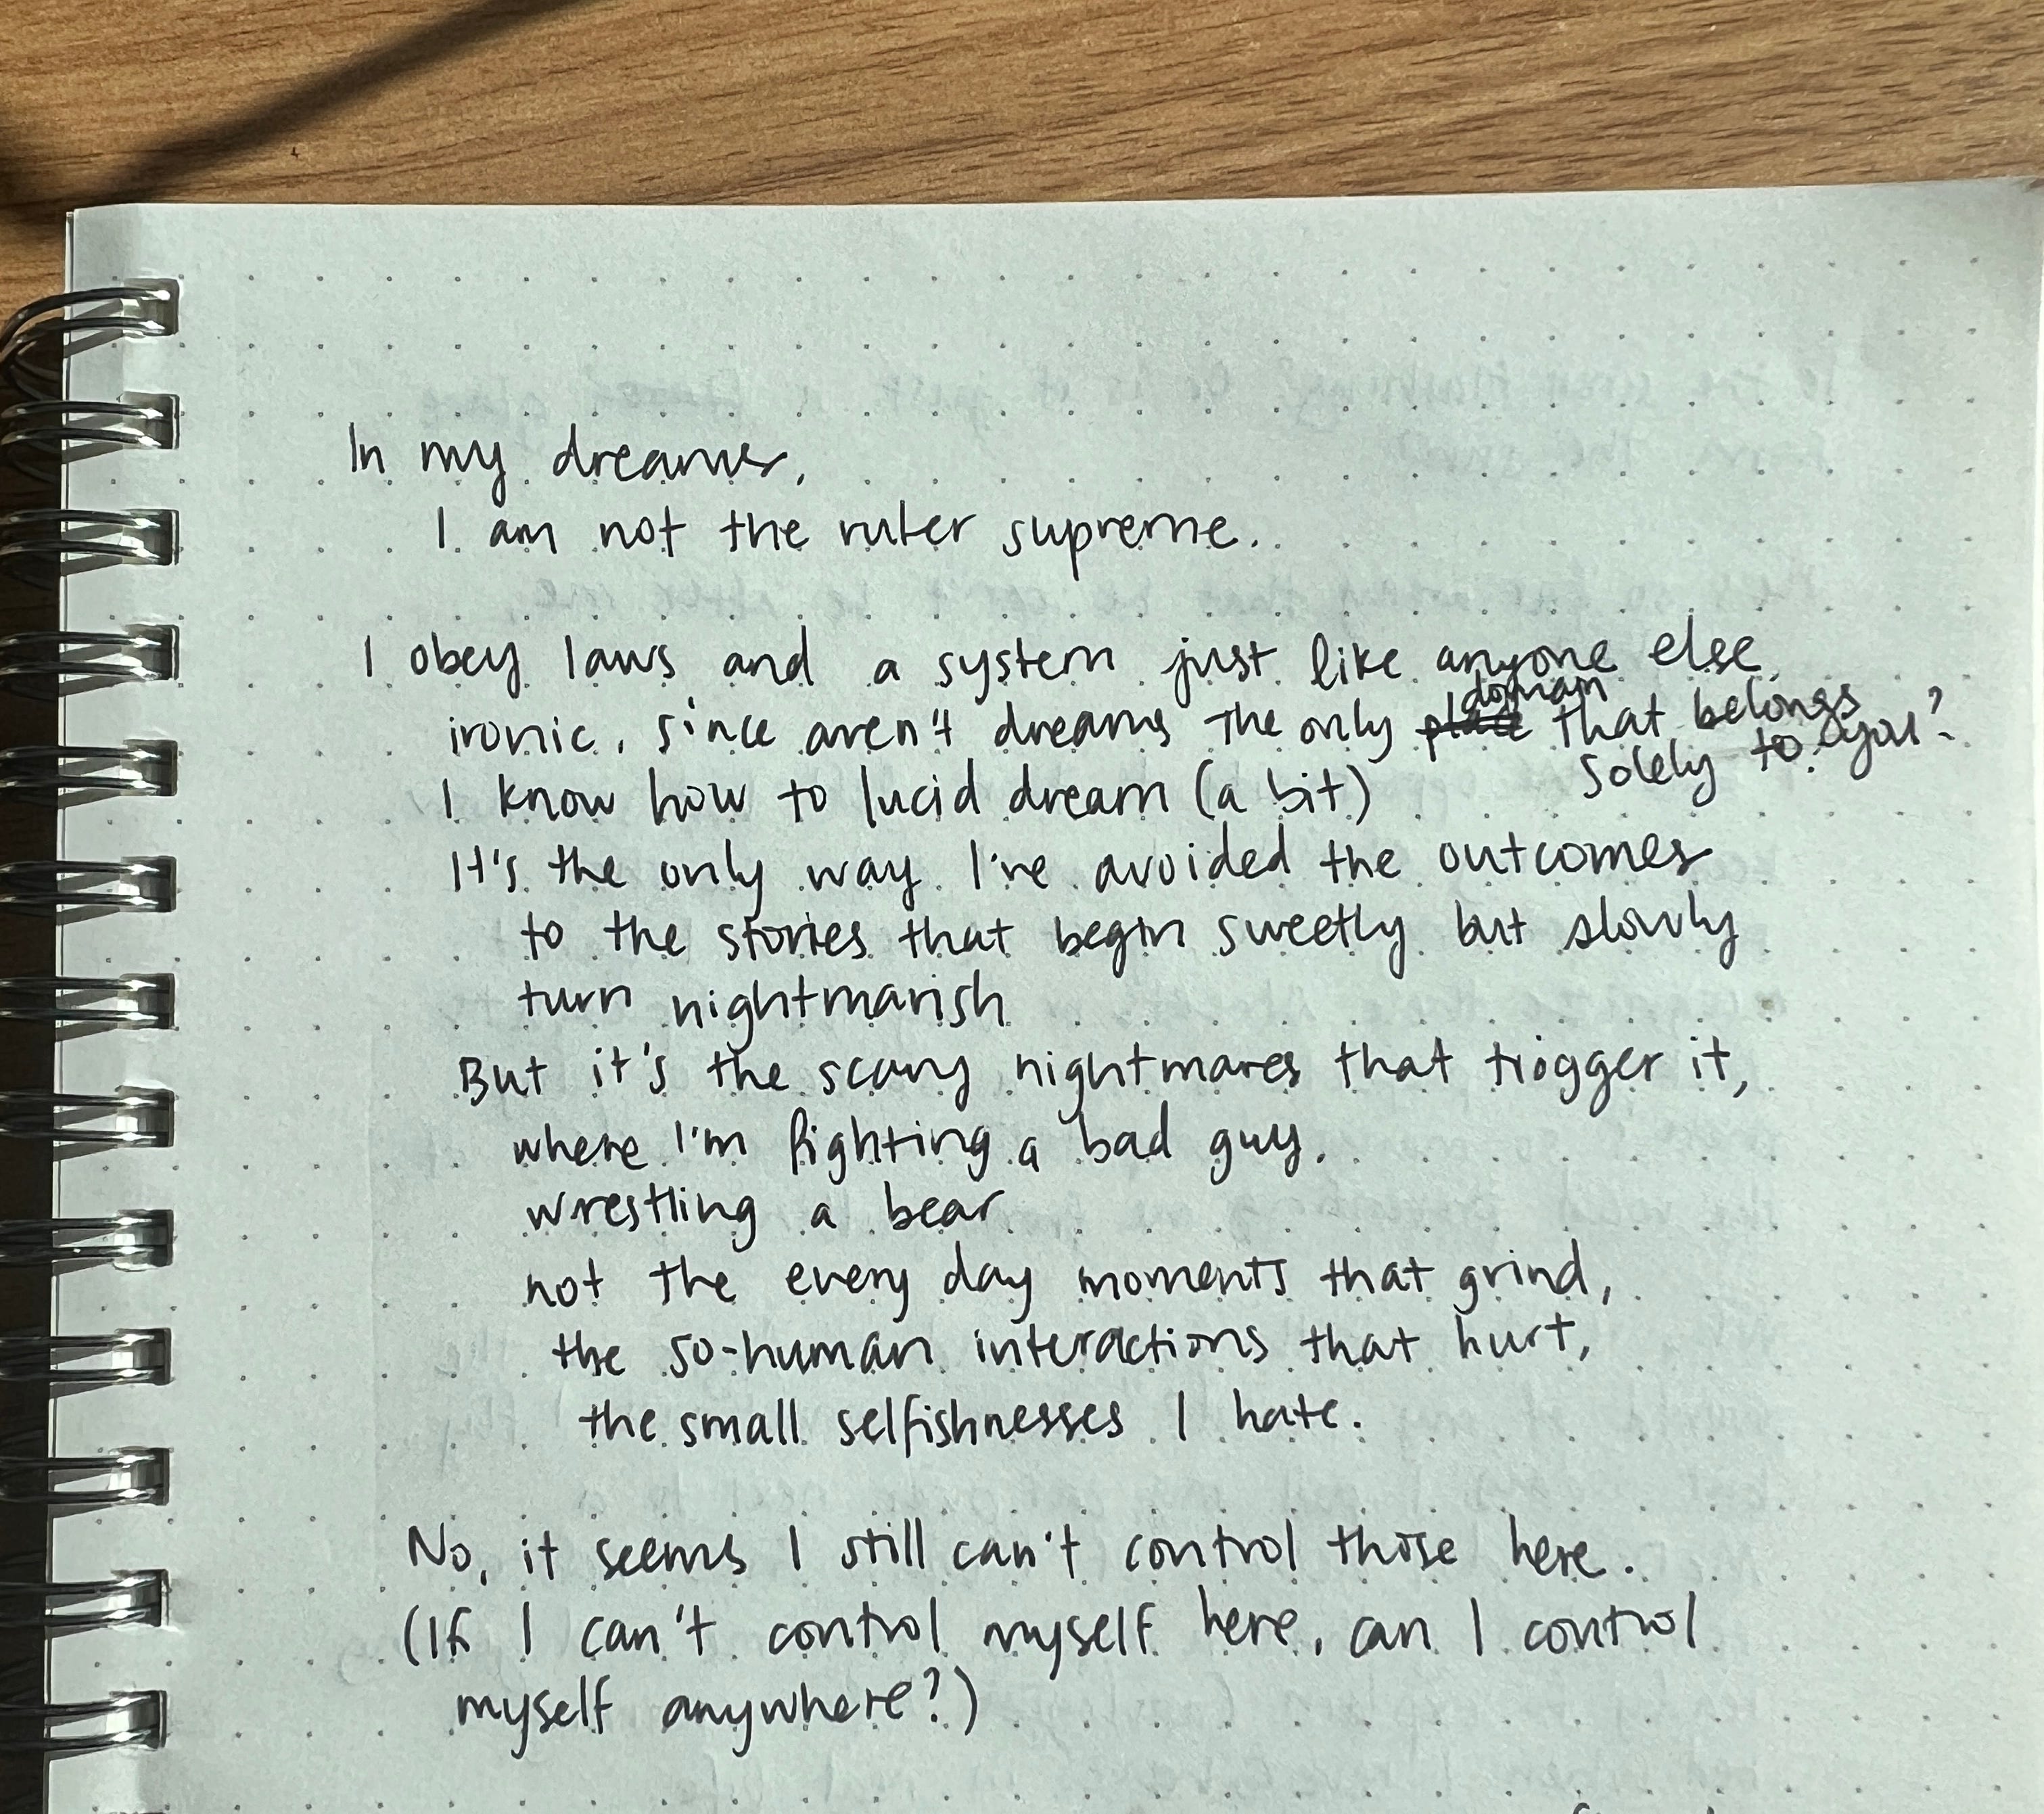 In my dreams,
I am not the ruler supreme.
I obey laws and a system just like anyone else
ironic, since aren't dreams the only place domain that belongs
solely to you?
I know how to lucid dream (a bit)
It's the only way I've avoided the outcomes
to the stories that begin sweetly but slowly
turn nightmarish
But it's the scary nightmares that trigger it,
where I'm fighting a bad guy.
wrestling a bear
not the every day moments that grind,
the so-human interactions that hurt,
the small selfishnesses I hate.
No, it seems I still can't control those here.
(If I can't control myself here, can I control
myself anywhere?)